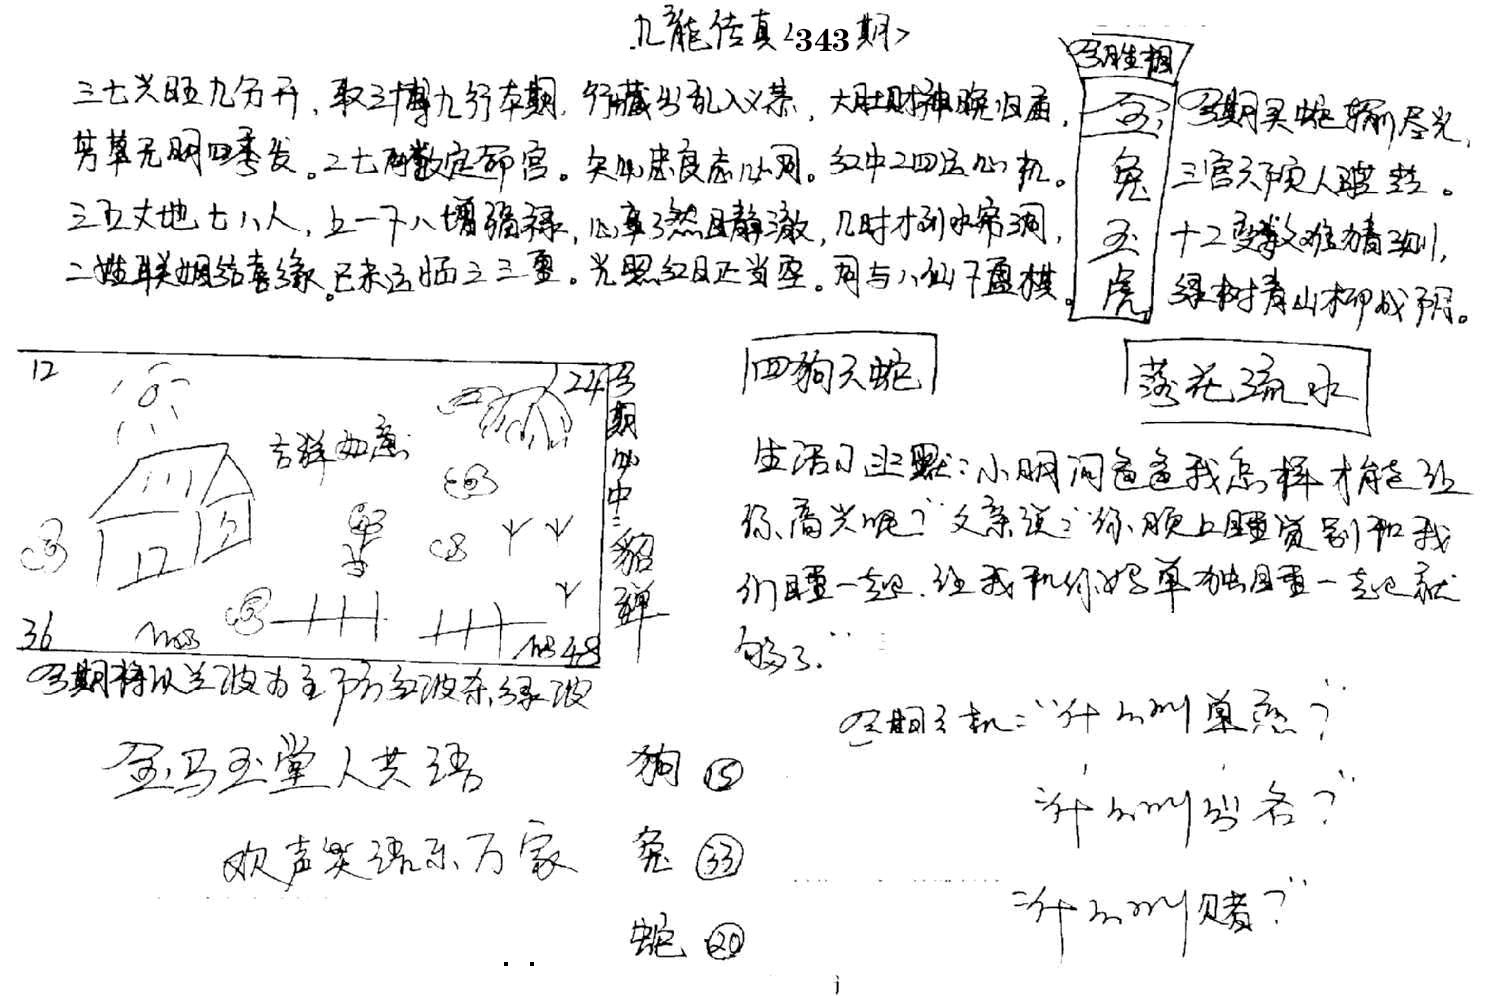 九龍传真<343期>
三七兴旺九分开，取三博九行本期，行藏出乱入义恭，大肚财神晚归
芳草无明四季发。二七两数定部宫。失小忠良志。红中二四五心机。
三五丈地七八人，上一下八增福禄，心享了然且静澈，几时才到水帘洞，
二姓联姻结喜缘。已未三重。光照红日正当空。同与八仙下盘棋。
今期生相
金
兔
玉
虎
今期买蛇输尽光，
三宫六人
十二变数难猜测，
绿树青山柳成阴。
12
24
吉祥如意
36
48
今期必中：貂蝉
今期特以兰波为主防红波杀绿波
四狗六蛇
落花流水
生活幽默：小明问爸爸我怎样才能让
你高兴呢？"父亲说："你晚上睡觉别和我
们睡一起，让我和你妈单独睡一起就
够了."
今期玄机："什么叫单恋？"
"什么叫出名？"
"什么叫赌？"
金马玉堂人共语
欢声笑语乐万家
狗 15
兔 33
蛇 20